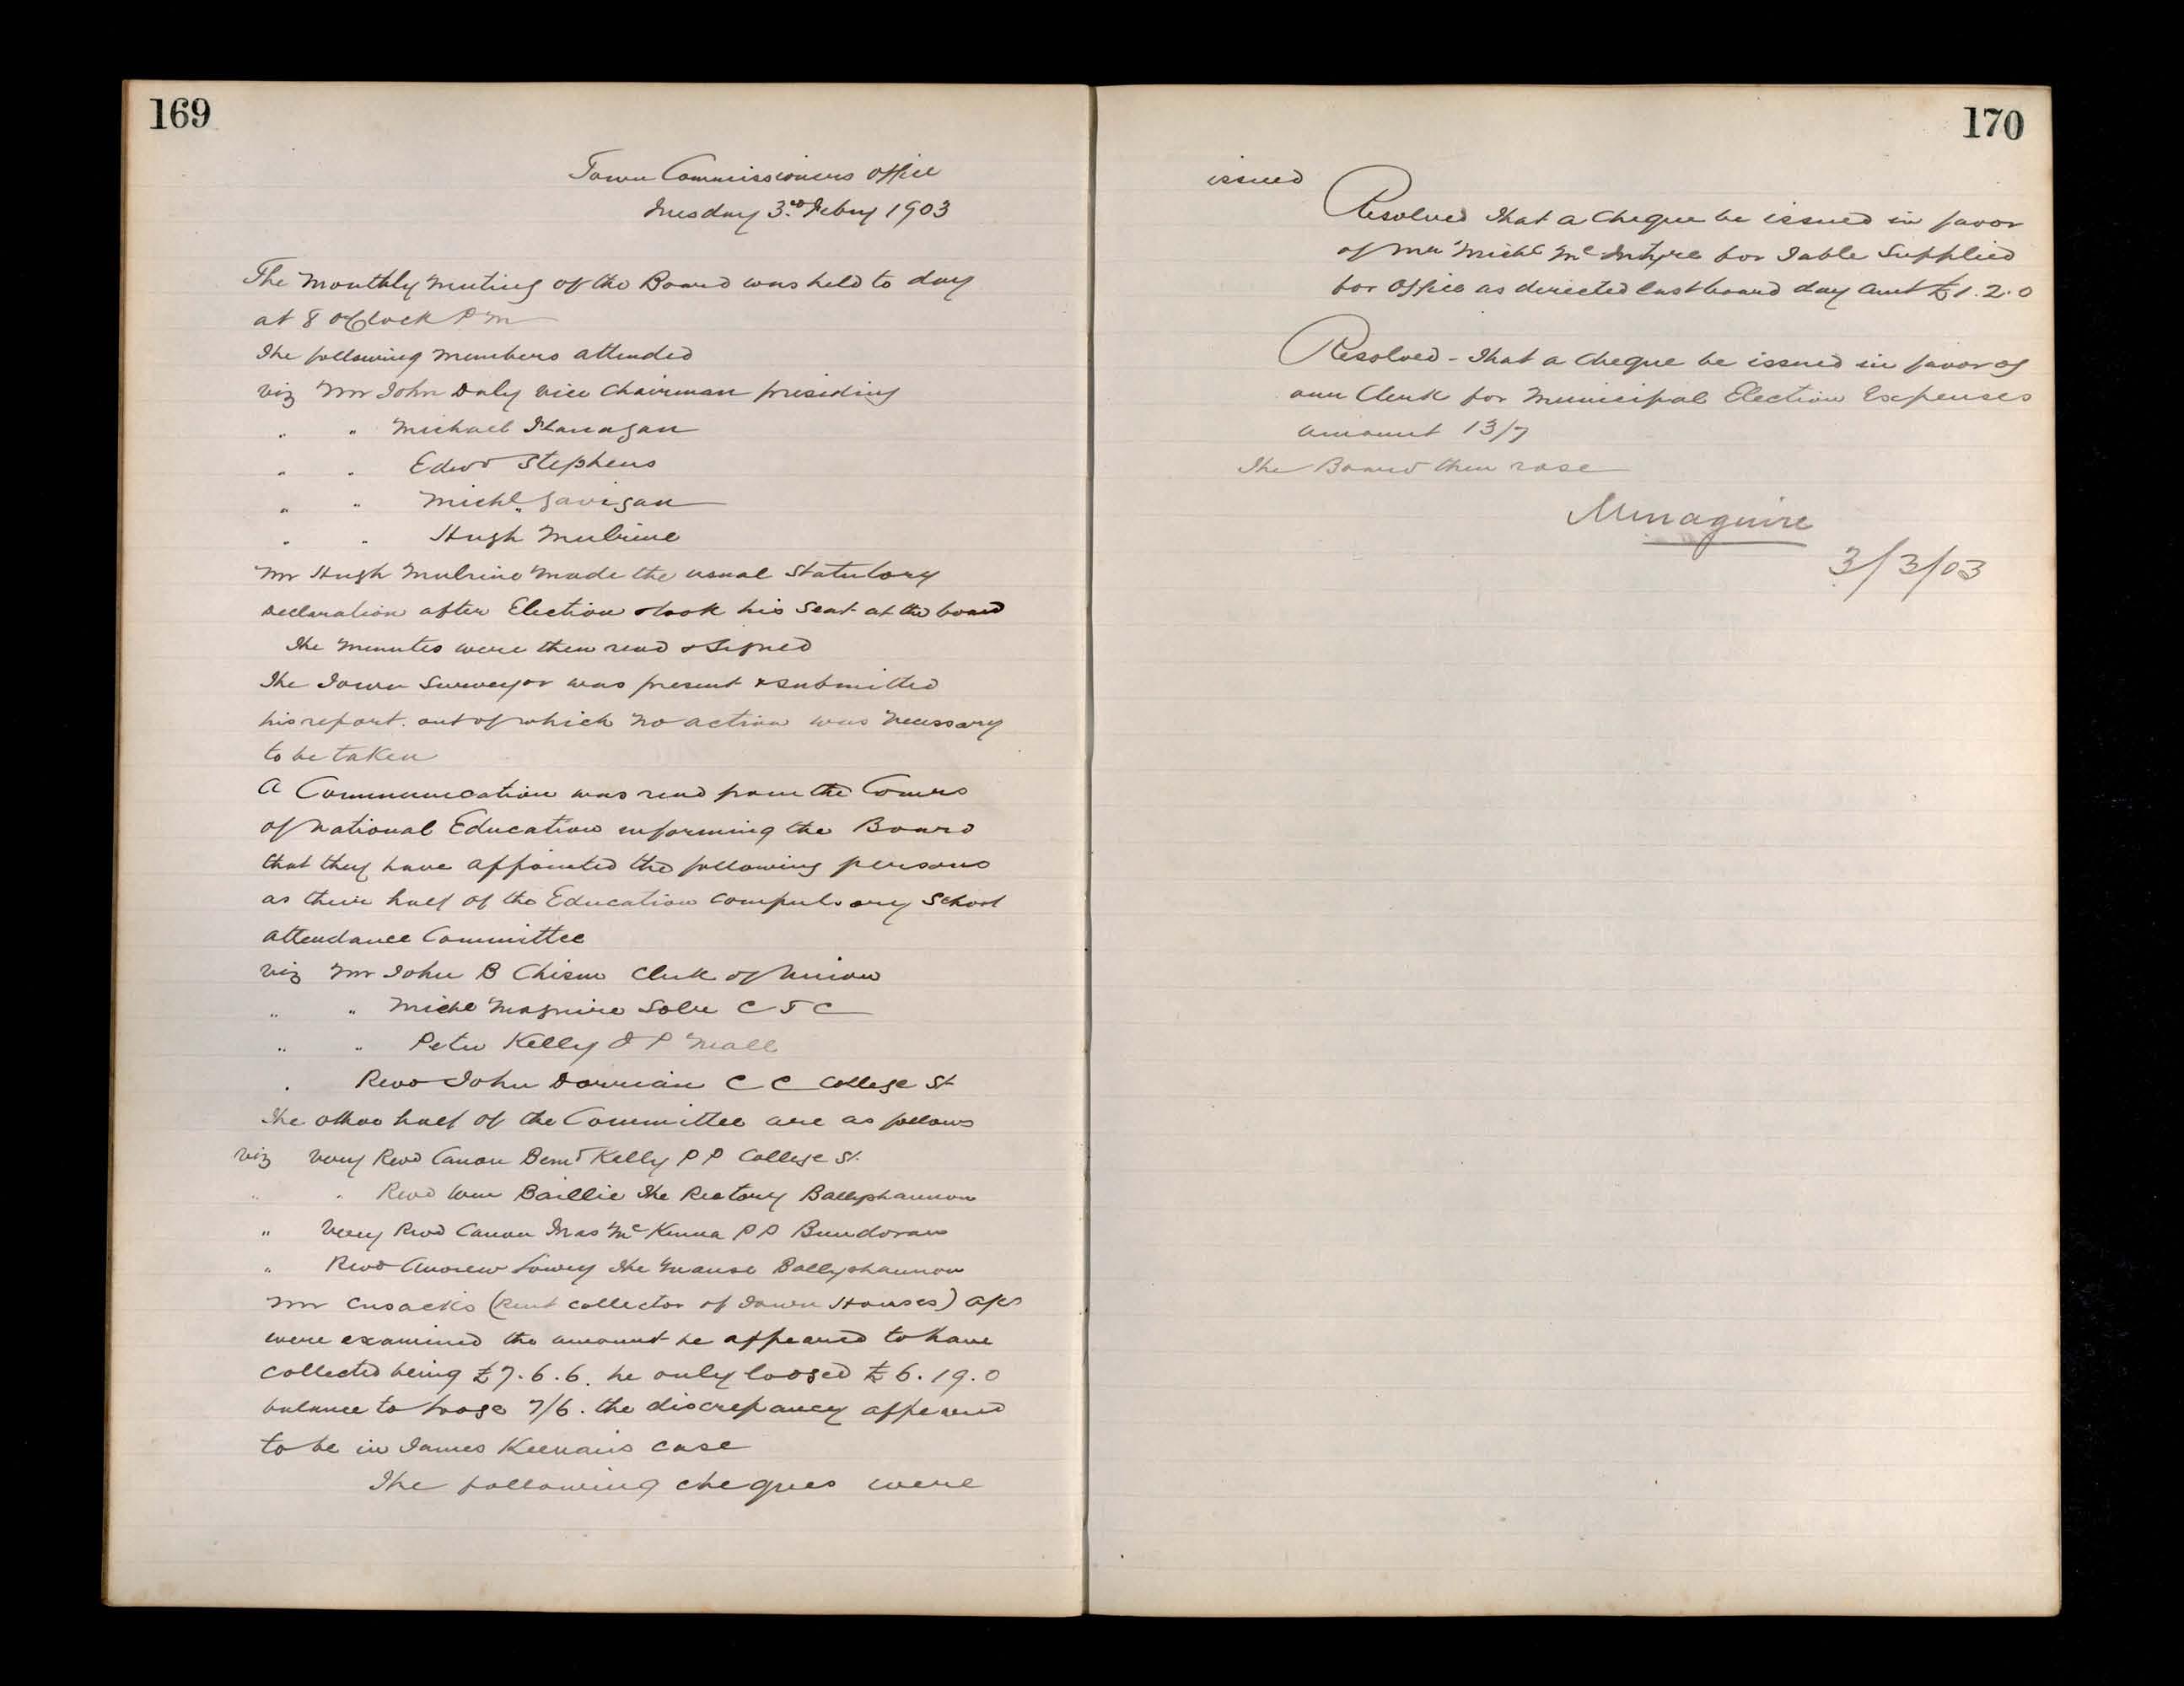 169
Town Commissioners Office
Tuesday 3rd Febry 1903
The Monthly Meeting of the Board was held to day
at 8 o'Clock P M
The following Members attended
viz Mr John Daly Vice Chairman presiding
" " Michael Flanagan
" " Edwd Stephens
" " Michl Gavigan
" " Hugh Mulrine
Mr Hugh Mulrine Made the usual Statutory
Declaration after Election & took his Seat at the board
The Minutes were then read & Signed
The Town Surveyor was present & submitted
his report. out of which No action was Necessary
to be taken
A Communication was read from the Comrs
of National Education informing the Board
that they have appointed the following persons
as their half of the Education Compulsory School
Attendance Committee
viz Mr John B Chism Clerk of Union
" " Michl Maguire Solr C T C
" " Peter Kelly J P Mall
" Revd John Dorrian C C College St
The other half of the Committee are as follows
viz Very Revd Canon Bernd Kelly P P College St.
" " Revd Wm Baillie The Rectory Ballyshannon
" Very Revd Canon Thos McKenna P P Bundoran
" Revd Andrew Lowry The Manse Ballyshannon
Mr Cusack's (Rent Collector of Town Houses) a/cs
were examined the amount he appeared to have
Collected being £7.6.6. he only lodged £6.19.0
balance to lodge 7/6. the discrepancy appeared
to be in James Keenan's case
The following cheques were
170
issued
Resolved That a Cheque be issued in favor
of Mr Michl McIntyre for Table Supplied
for Office as directed last board day Amt £1.2.0
Resolved - That a Cheque be issued in favor of
our Clerk for Municipal Election Expenses
Amount 13/7
The Board then rose
MMaguire
3/3/03